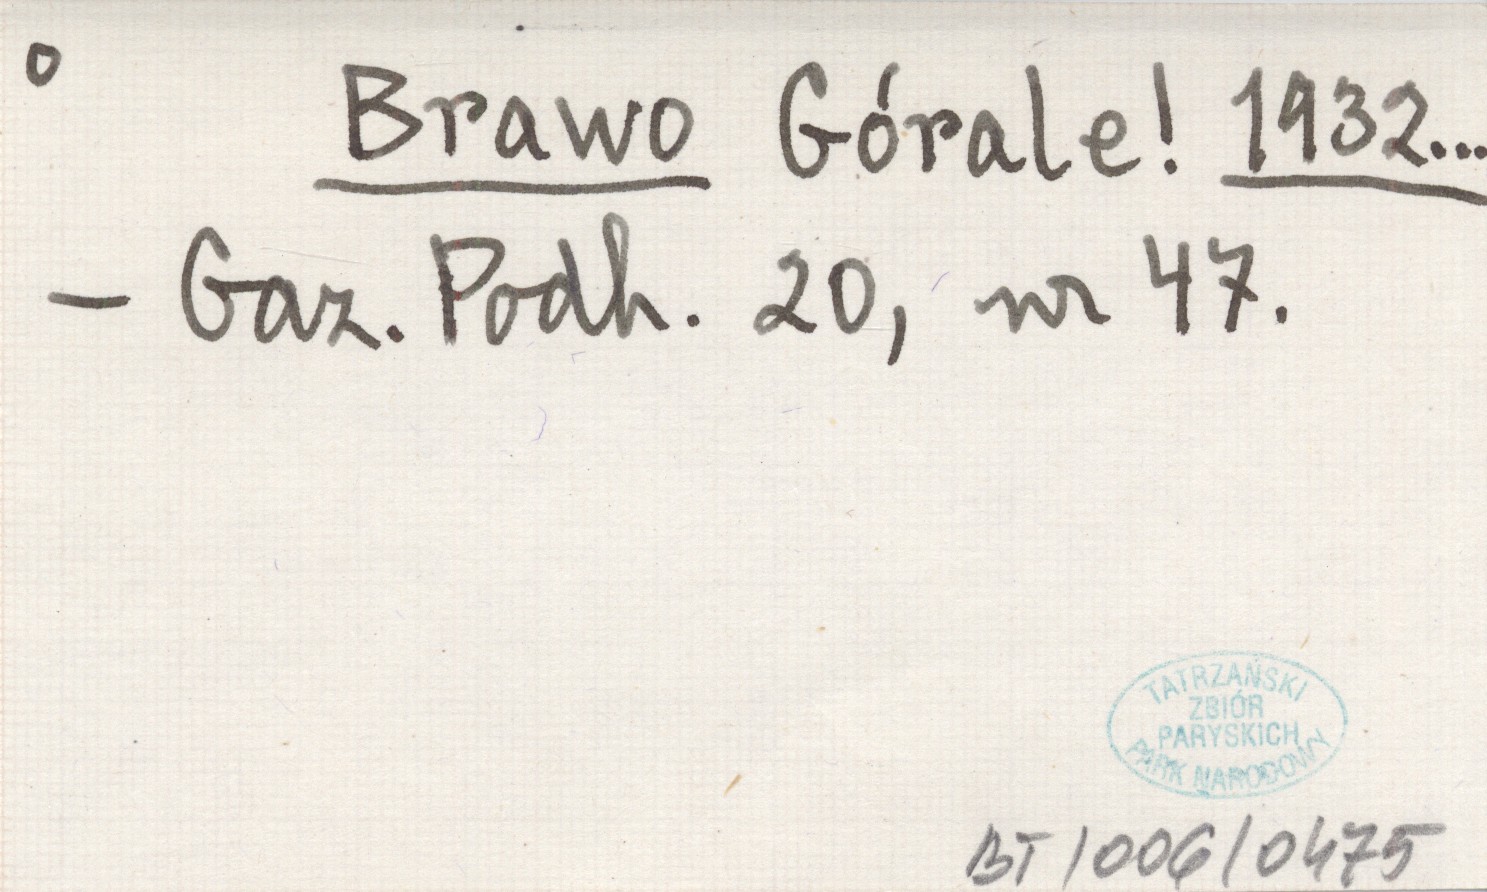 o
Brawo Górale! 1932...
– Gaz. Podh. 20, nr 47.
TATRZAŃSKI
ZBIÓR
PARYSKICH
PARK NARODOWY
BT/006/0475